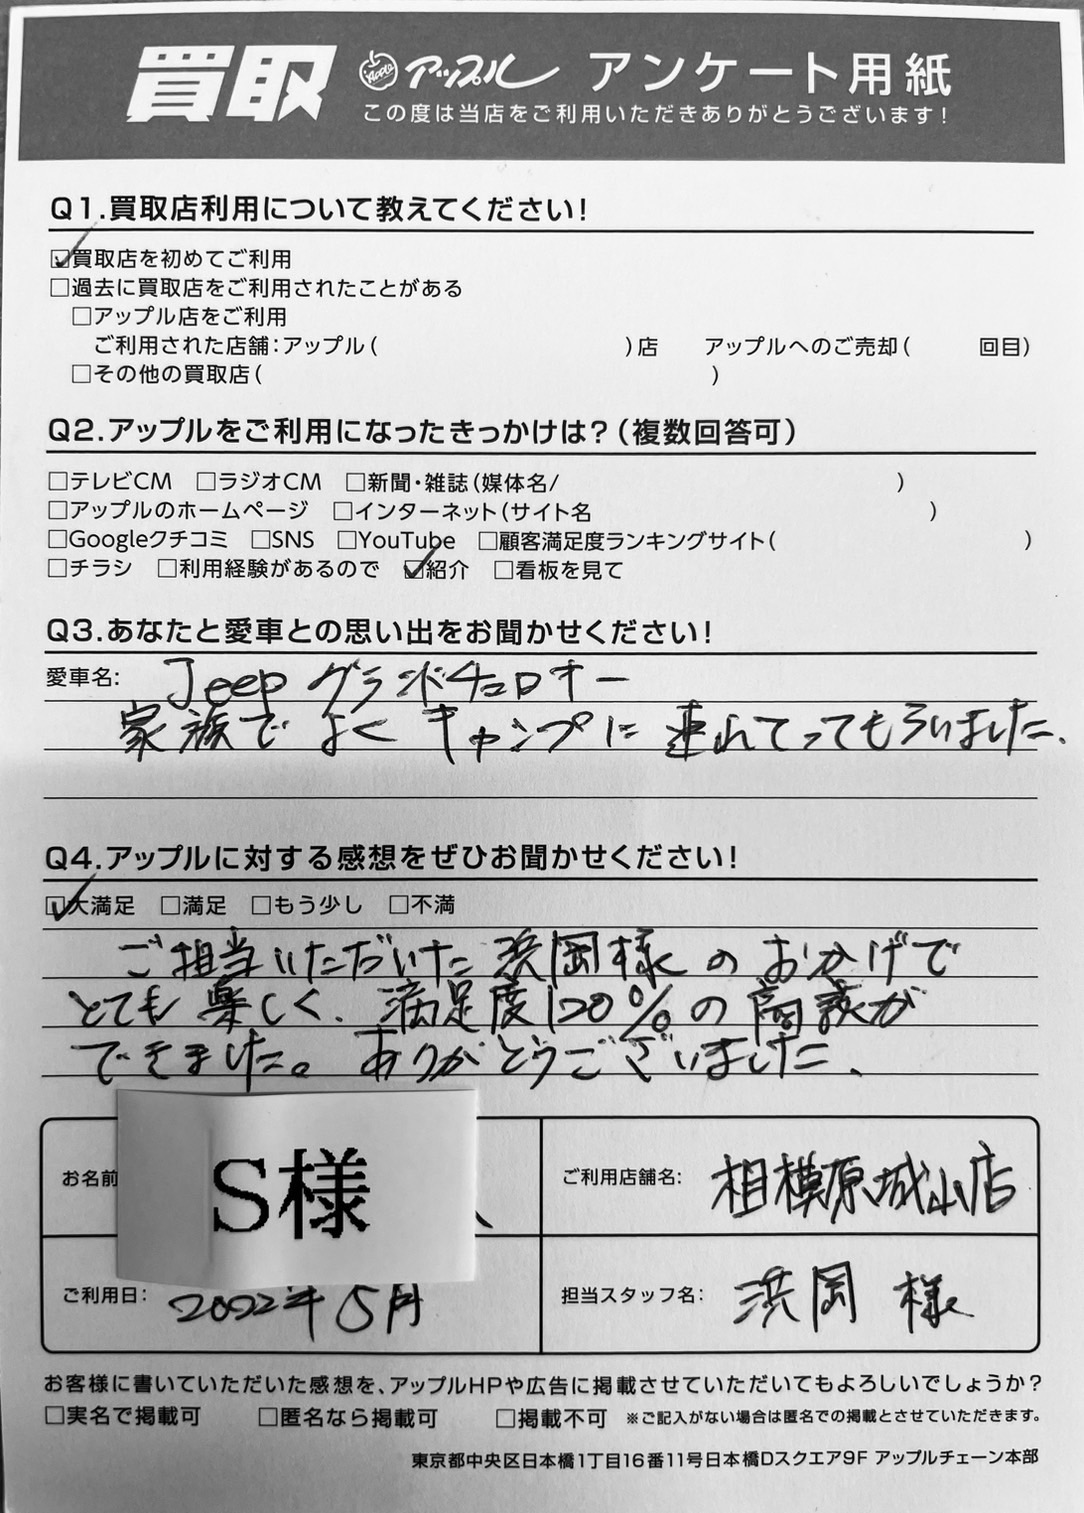 買取 Apple アップル アンケート用紙
この度は当店をご利用いただきありがとうございます!
Q1.買取店利用について教えてください!
☑買取店を初めてご利用
□過去に買取店をご利用されたことがある
□アップル店をご利用
ご利用された店舗:アップル( )店 アップルへのご売却( 回目)
□その他の買取店( )
Q2.アップルをご利用になったきっかけは?(複数回答可)
□テレビCM □ラジオCM □新聞・雑誌(媒体名/ )
□アップルのホームページ □インターネット(サイト名 )
□Googleクチコミ □SNS □YouTube □顧客満足度ランキングサイト( )
□チラシ □利用経験があるので ☑紹介 □看板を見て
Q3.あなたと愛車との思い出をお聞かせください!
愛車名: Jeep グランドチェロキー
家族でよくキャンプに連れてってもらいました.
Q4.アップルに対する感想をぜひお聞かせください!
☑大満足 □満足 □もう少し □不満
ご担当いただいた浜岡様のおかげで
とても楽しく、満足度120%の商談が
できました。ありがとうございました、
お名前 S様 ご利用店舗名: 相模原城山店
ご利用日: 2022年5月 担当スタッフ名: 浜岡 様
お客様に書いていただいた感想を、アップルHPや広告に掲載させていただいてもよろしいでしょうか?
□実名で掲載可 □匿名なら掲載可 □掲載不可 ※ご記入がない場合は匿名での掲載とさせていただきます。
東京都中央区日本橋1丁目16番11号日本橋Dスクエア9F アップルチェーン本部